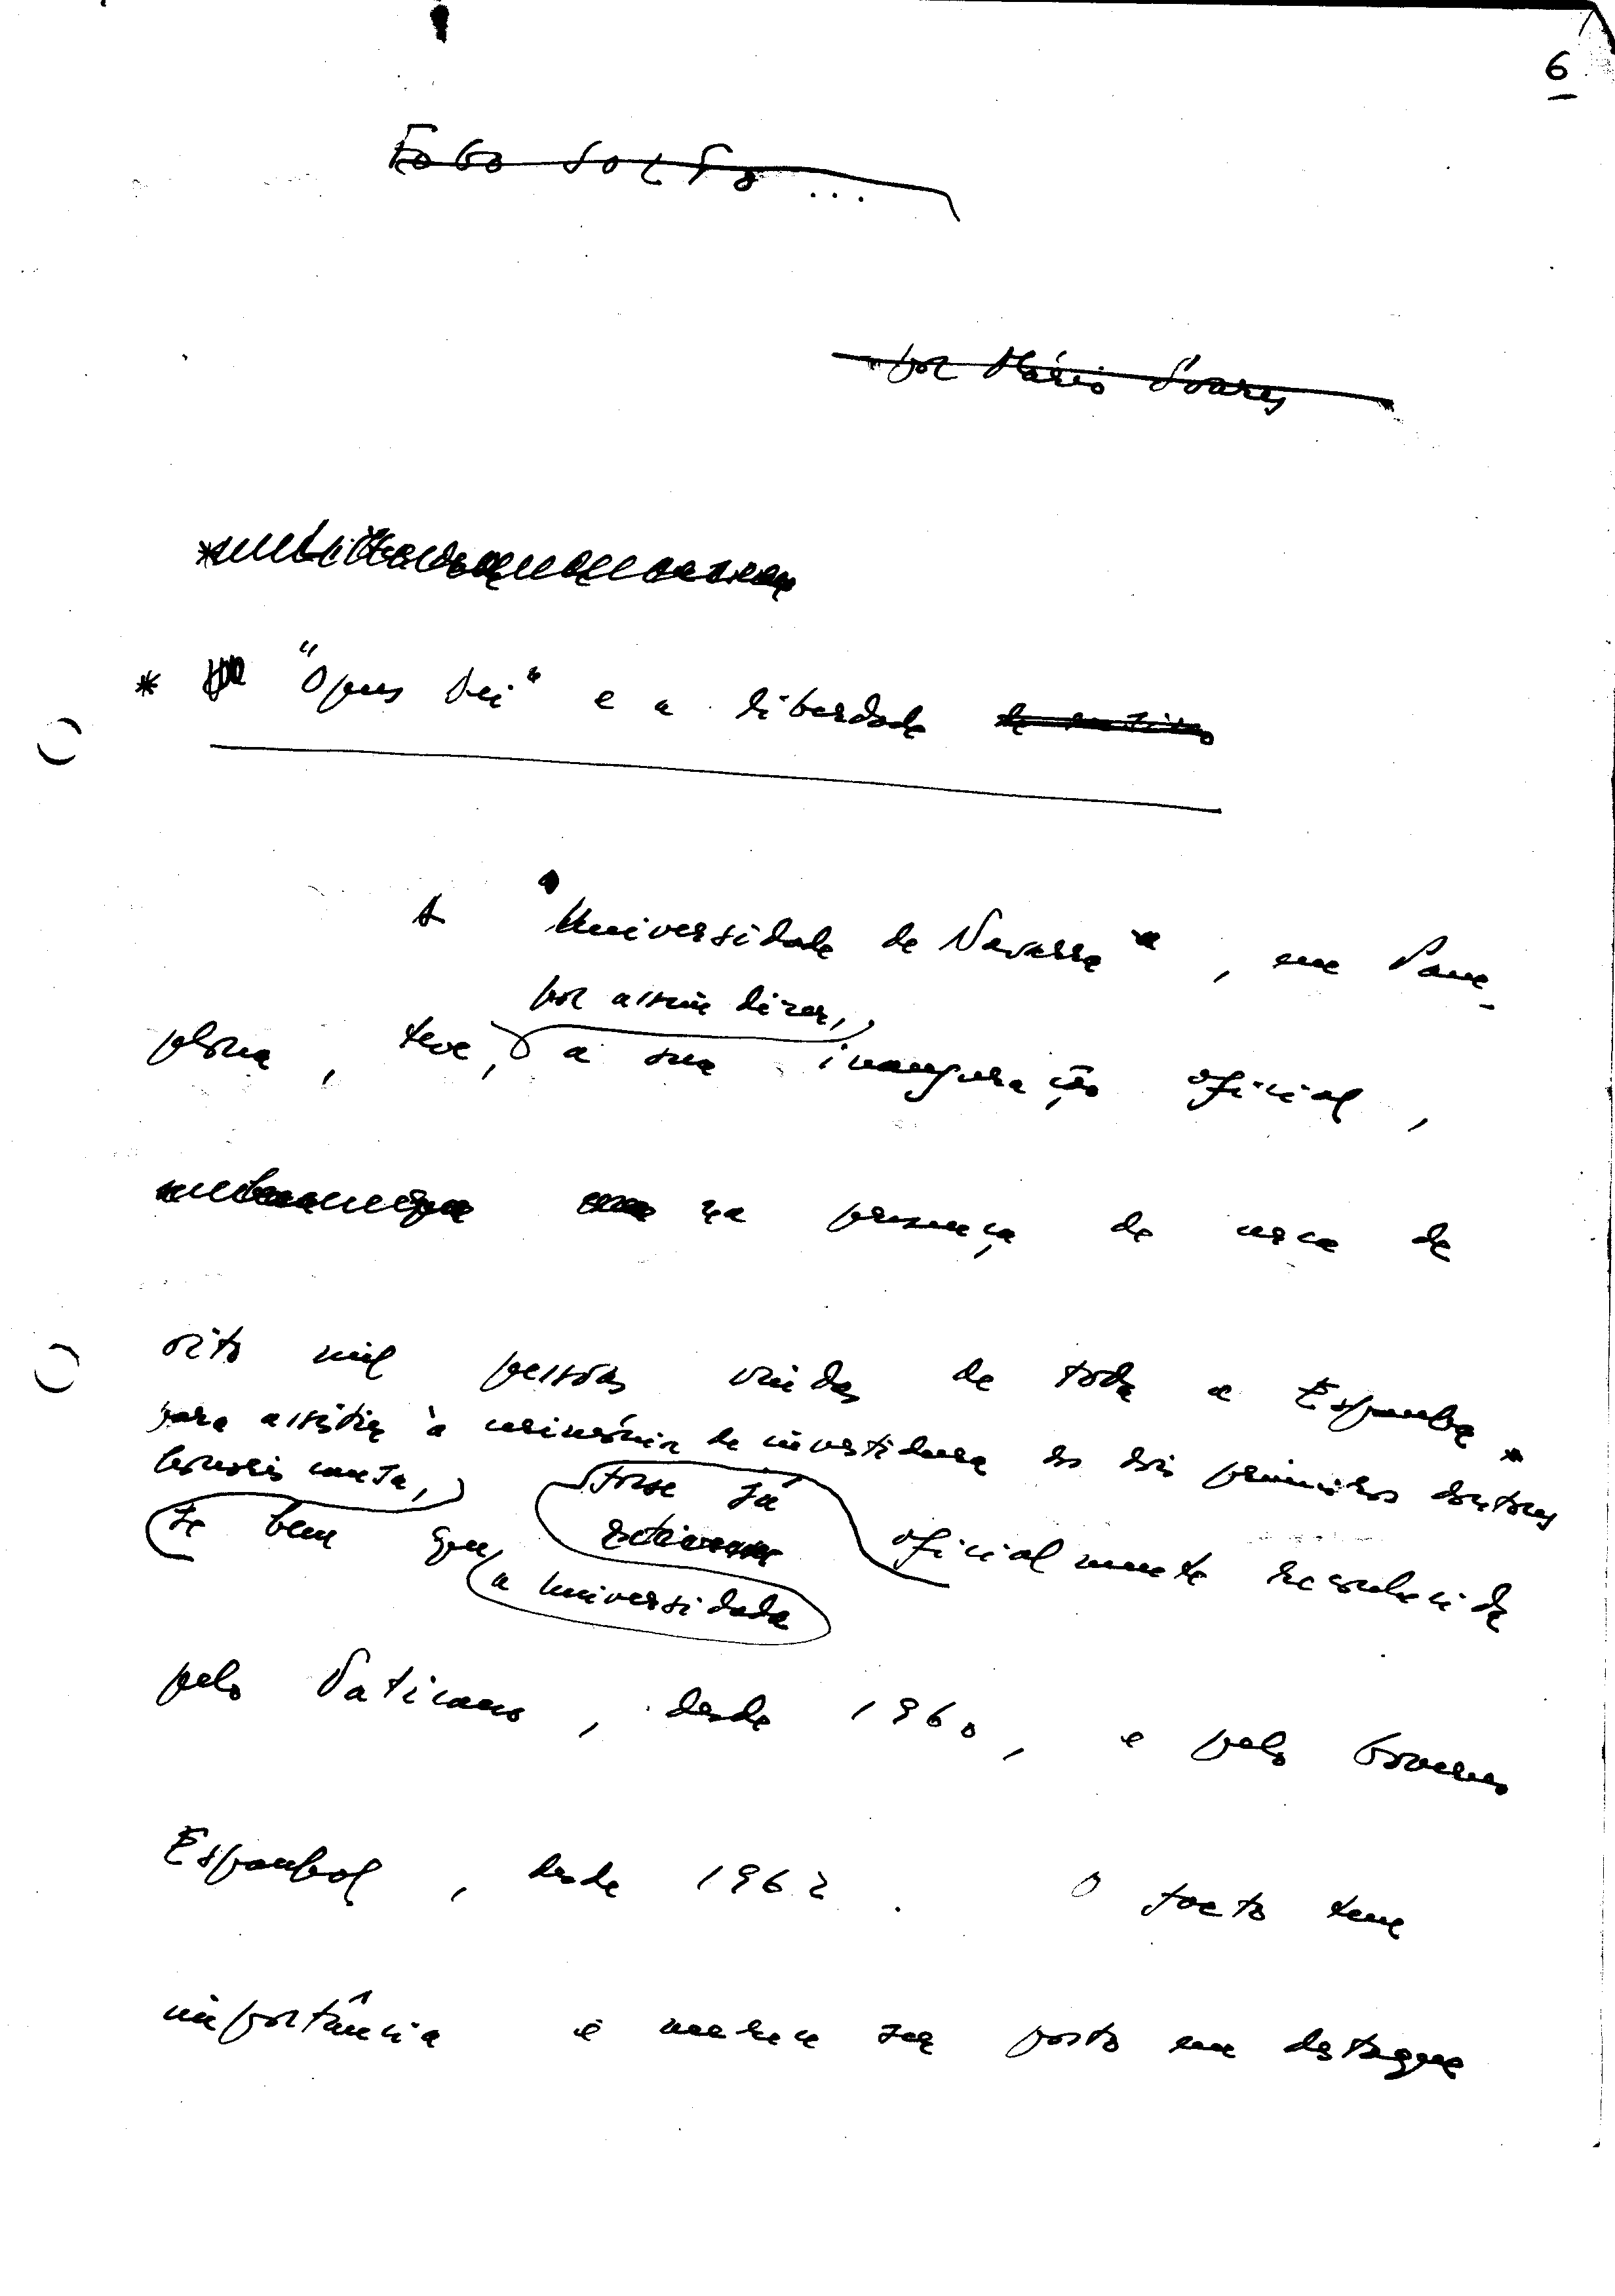 6
por Mário Soares
* "Opus Dei" e a liberdade
A Universidade de Navarra, em Pam-
por assim dizer,
plona, teve, a sua inauguração oficial,
na presença de cerca de
oito mil pessoas vindas de toda a Espanha
para assistir à cerimónia de investidura dos dois primeiros doutores
honoris causa,
se bem que fosse já oficialmente reconhecida
a Universidade
pelo Vaticano, desde 1960, e pelo Governo
Espanhol, desde 1962. O facto tem
importância e merece ser posto em destaque